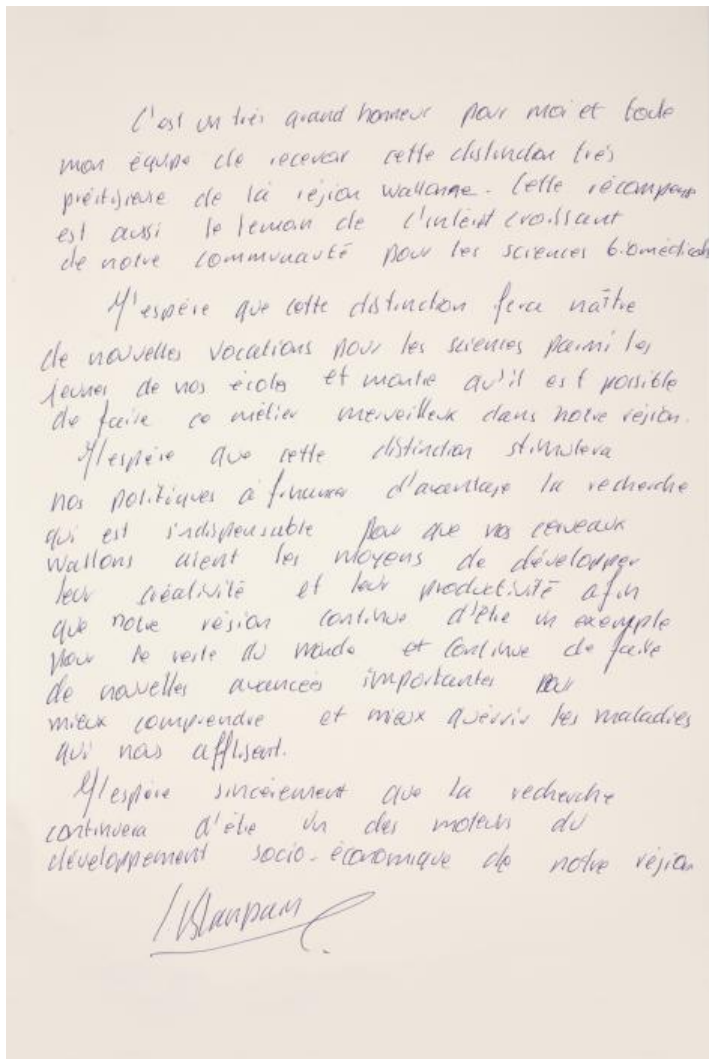 C'est un très grand honneur pour moi et toute
mon équipe de recevoir cette distinction très
prestigieuse de la région wallonne. Cette récompense
est aussi le temoin de l'intérêt croissant
de notre communauté pour les sciences biomédicales
J'espère que cette distinction fera naître
de nouvelles vocations pour les sciences parmi les
jeunes de nos écoles et montre qu'il est possible
de faire ce métier merveilleux dans notre région.
J'espère que cette distinction stimulera
nos politiques à financer d'avantage la recherche
qui est indispensable pour que nos cerveaux
wallons aient les moyens de développer
leur créativité et leur productivité afin
que notre région continue d'être un exemple
pour le reste du monde et continue de faire
de nouvelles avancées importantes pour
mieux comprendre et mieux guérrir les maladies
qui nous affligent.
J'espère sincèrement que la recherche
continuera d'être un des moteurs du
développement socio-économique de notre région